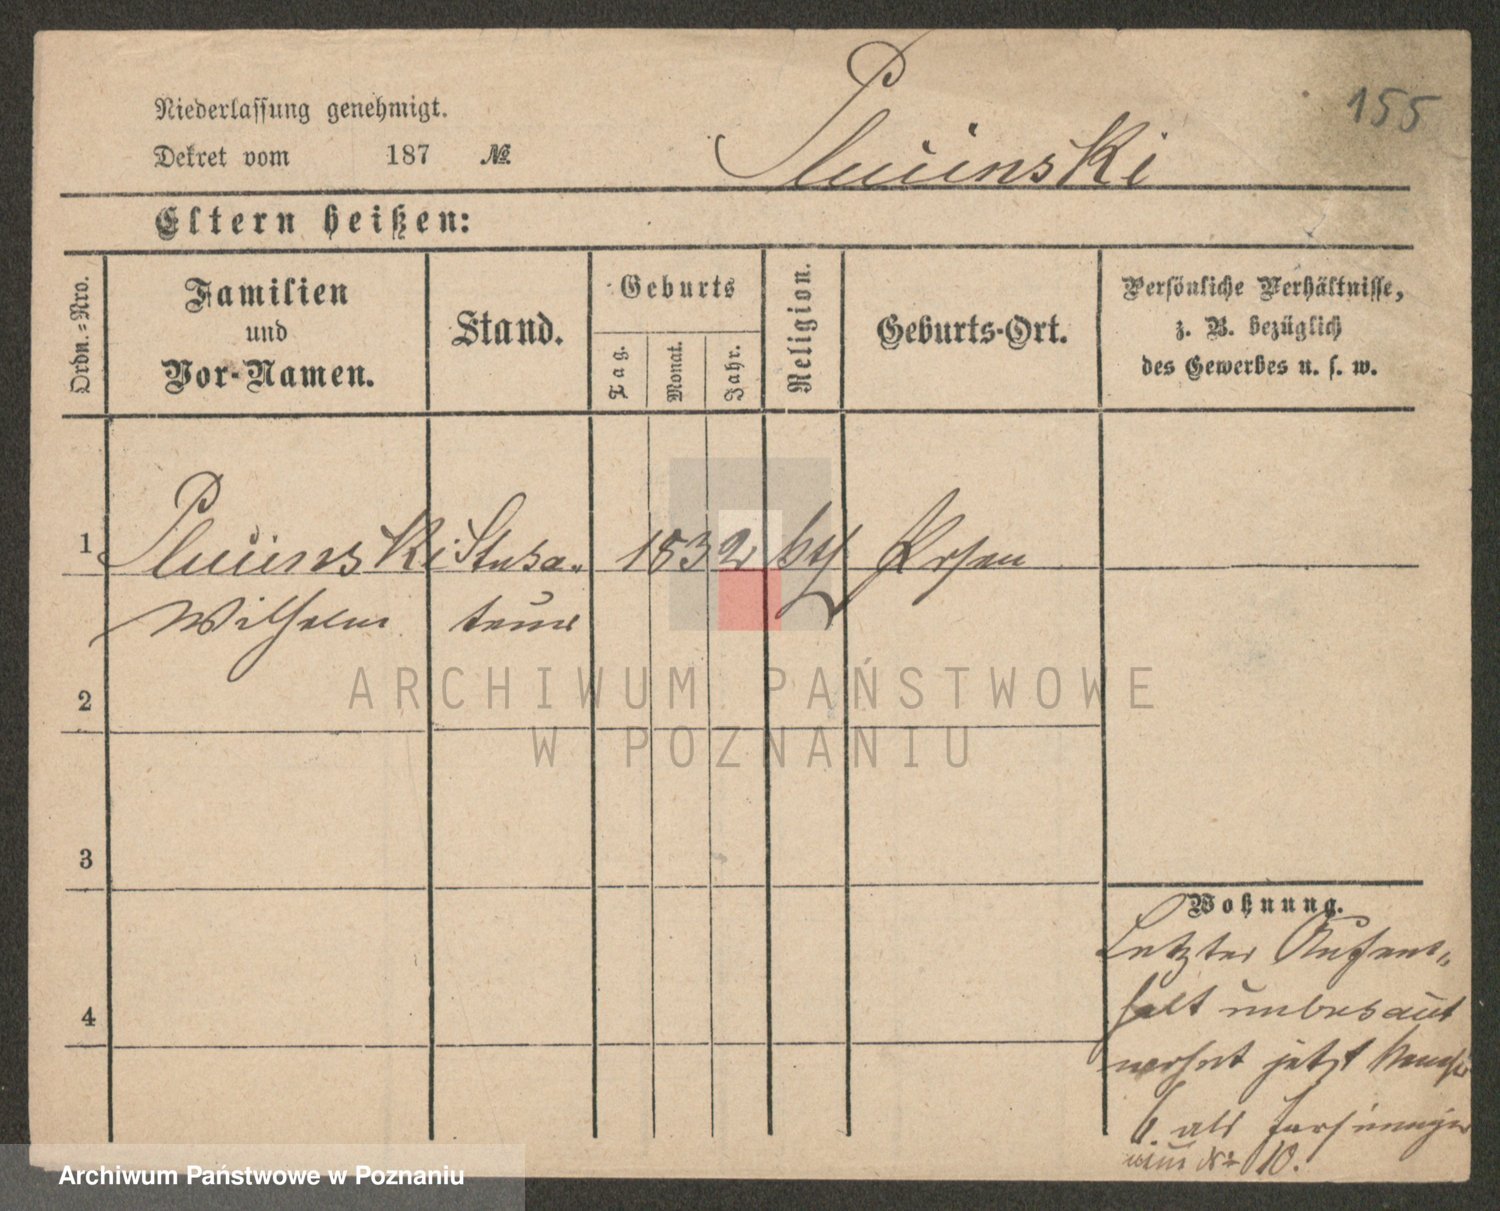 155
Niederlassung genehmigt.
Dekret vom 187 №
Plucinski
Eltern heißen:
Ordn.=Nro.
Familien
und
Vor-Namen.
Stand.
Geburts
Tag.
Monat.
Jahr.
Religion.
Geburts-Ort.
Persönliche Verhältnisse,
z. B. bezüglich
des Gewerbes u. s. w.
1 Plucinski 1832 Posen
Wilhelm
2
3
4
Wohnung.
Letzter Aufent=
halt unbekannt
wohnt jetzt
6. als
№ 10.
ARCHIWUM PAŃSTWOWE
W POZNANIU
Archiwum Państwowe w Poznaniu